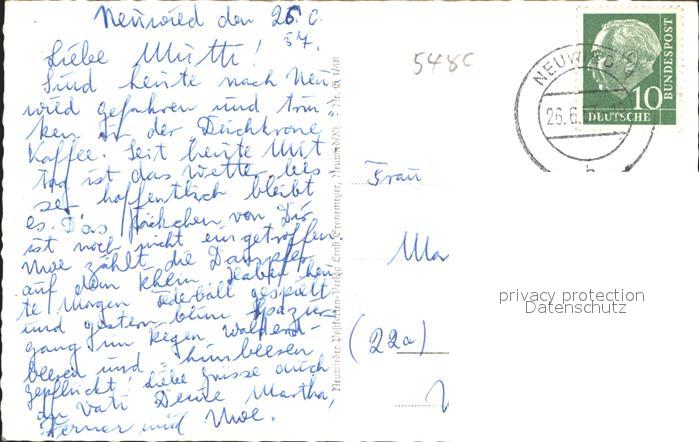 Neuwied den 26. 6.
57.
Liebe Mutti!
Sind heute nach Neu
wied gefahren und trin
ken in der Deichkrone
Kaffee. Seit heute Mit
tag ist das Wetter bes
ser hoffentlich bleibt
es. Das Päckchen von Dir
ist noch nicht eingetroffen
Uwe zählt die Dampfer
auf dem Rhein. Haben heu
te Morgen Federball gespielt
und gestern beim Spazier
gang im Regen Walderd-
beeren und Himbeeren
gepflückt! Liebe Grüsse auch
an Vati Deine Martha,
Werner und Uwe.
548C
NEUWIED
26.6.
b
10
DEUTSCHE
BUNDESPOST
Frau
Mar
(22a)
privacy protection
Datenschutz